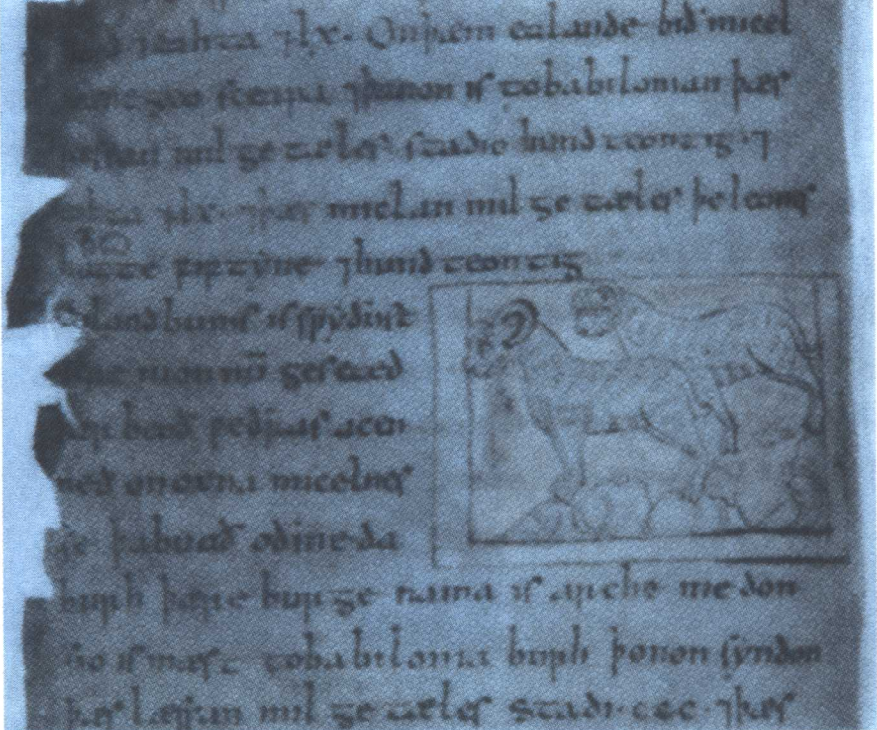 eahta ⁊lx· Onþæm ealande bið micel
sceapa ⁊þanon is tobabilonian þæs
mil ge tæles stadio hund teontig· ⁊
⁊lx· ⁊þæs miclan mil ge tæles þe leones
hatte fiftyne ⁊hund teontig
land bunis is swyðust
monnū geseted
beoð weðras acen
ned onoxna micelnes
se þabuað oðmeda
burh þære burge nama is arche medon
sio is mæst tobabilonia burh þonon syndon
þæs læssan mil ge tæles stadi· ccc· ⁊þæs